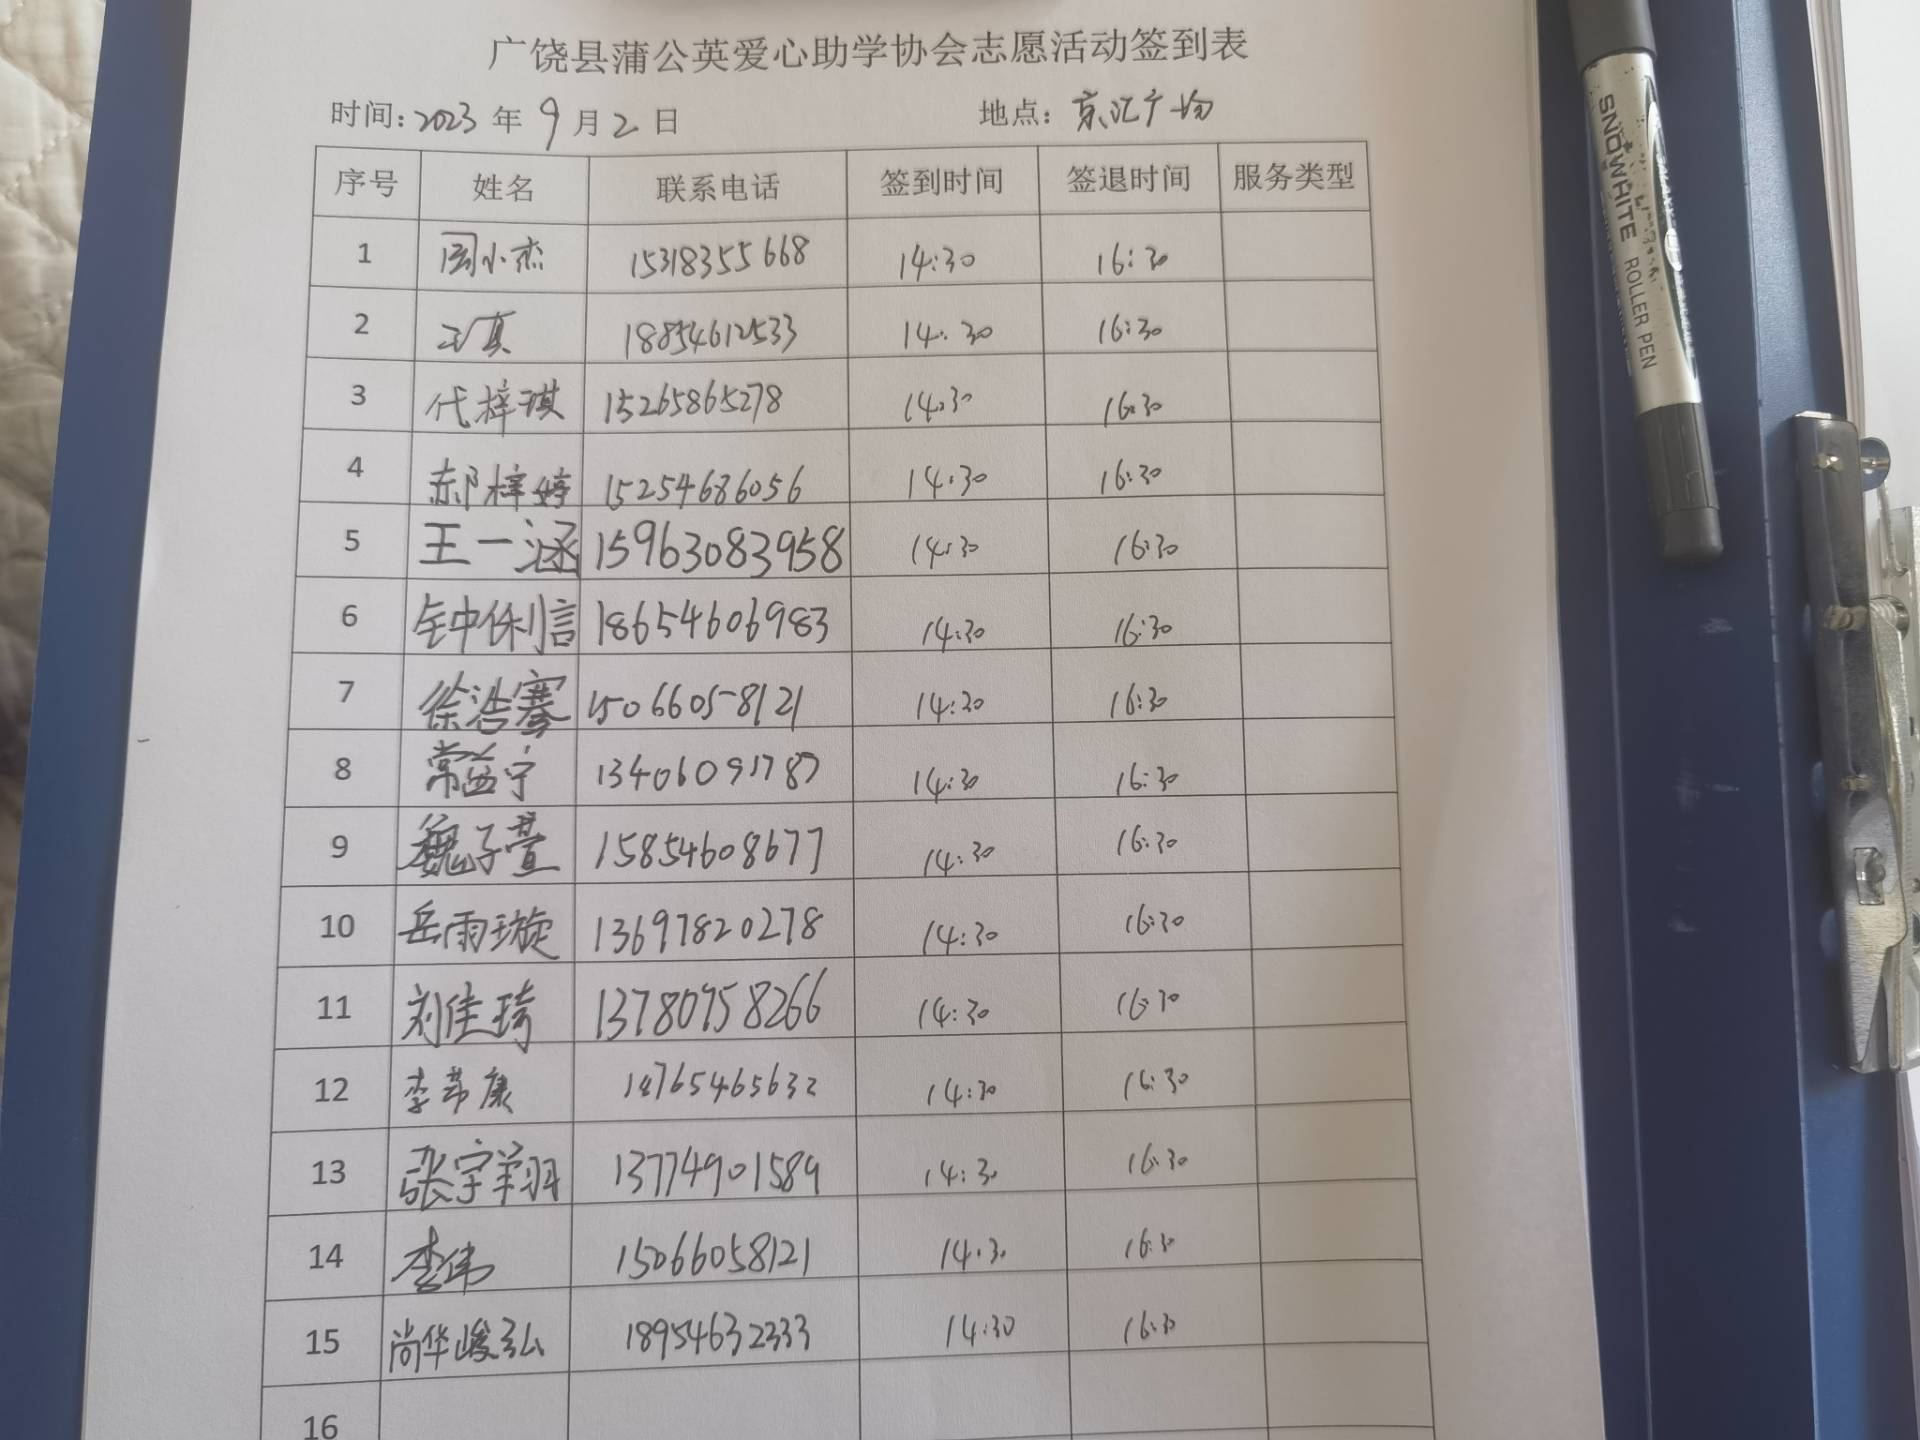 广饶县蒲公英爱心助学协会志愿活动签到表
时间:2023 年 9 月 2 日 地点: 京汇广场
序号 姓名 联系电话 签到时间 签退时间 服务类型
1 周小杰 15318355668 14:30 16:30
2 王真 18854612533 14:30 16:30
3 代梓琪 15265865278 14:30 16:30
4 郝梓婷 15254686056 14:30 16:30
5 王一涵 15963083958 14:30 16:30
6 钟侨信 18654606983 14:30 16:30
7 徐浩骞 15066058121 14:30 16:30
8 常益宁 13406091787 14:30 16:30
9 魏子萱 15854608677 14:30 16:30
10 岳雨璇 13697820278 14:30 16:30
11 刘佳琦 13780758266 14:30 16:30
12 李芾康 14765465632 14:30 16:30
13 张宇翔 13774901589 14:30 16:30
14 李伟 15066058121 14:30 16:30
15 尚华峻弘 18954632333 14:30 16:30
16
SNOWHITE ROLLER PEN